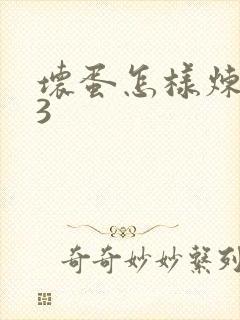 壞蛋怎樣煉
3
奇奇妙妙繫列